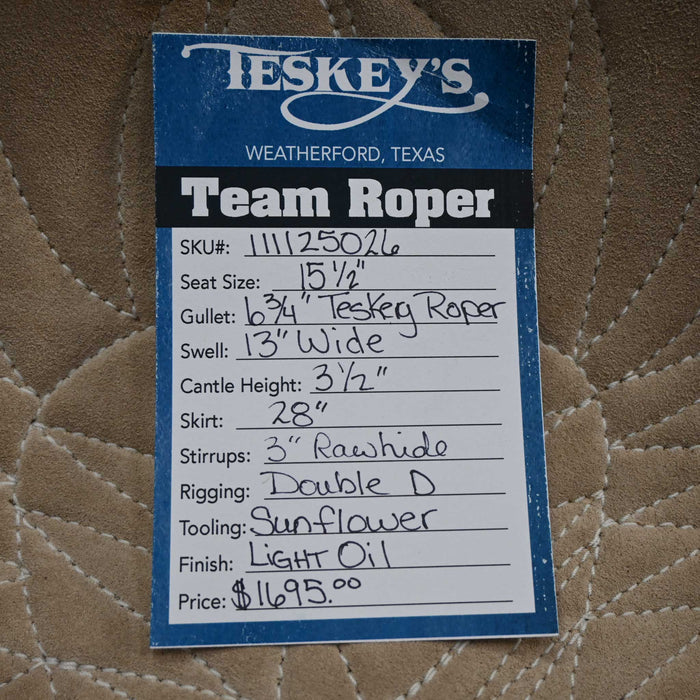 TESKEY'S
WEATHERFORD, TEXAS
Team Roper
SKU#: 111125026
Seat Size: 15 1/2"
Gullet: 6 3/4" Teskey Roper
Swell: 13" Wide
Cantle Height: 3 1/2"
Skirt: 28"
Stirrups: 3" Rawhide
Rigging: Double D
Tooling: Sunflower
Finish: LIGHT Oil
Price: $1695.00